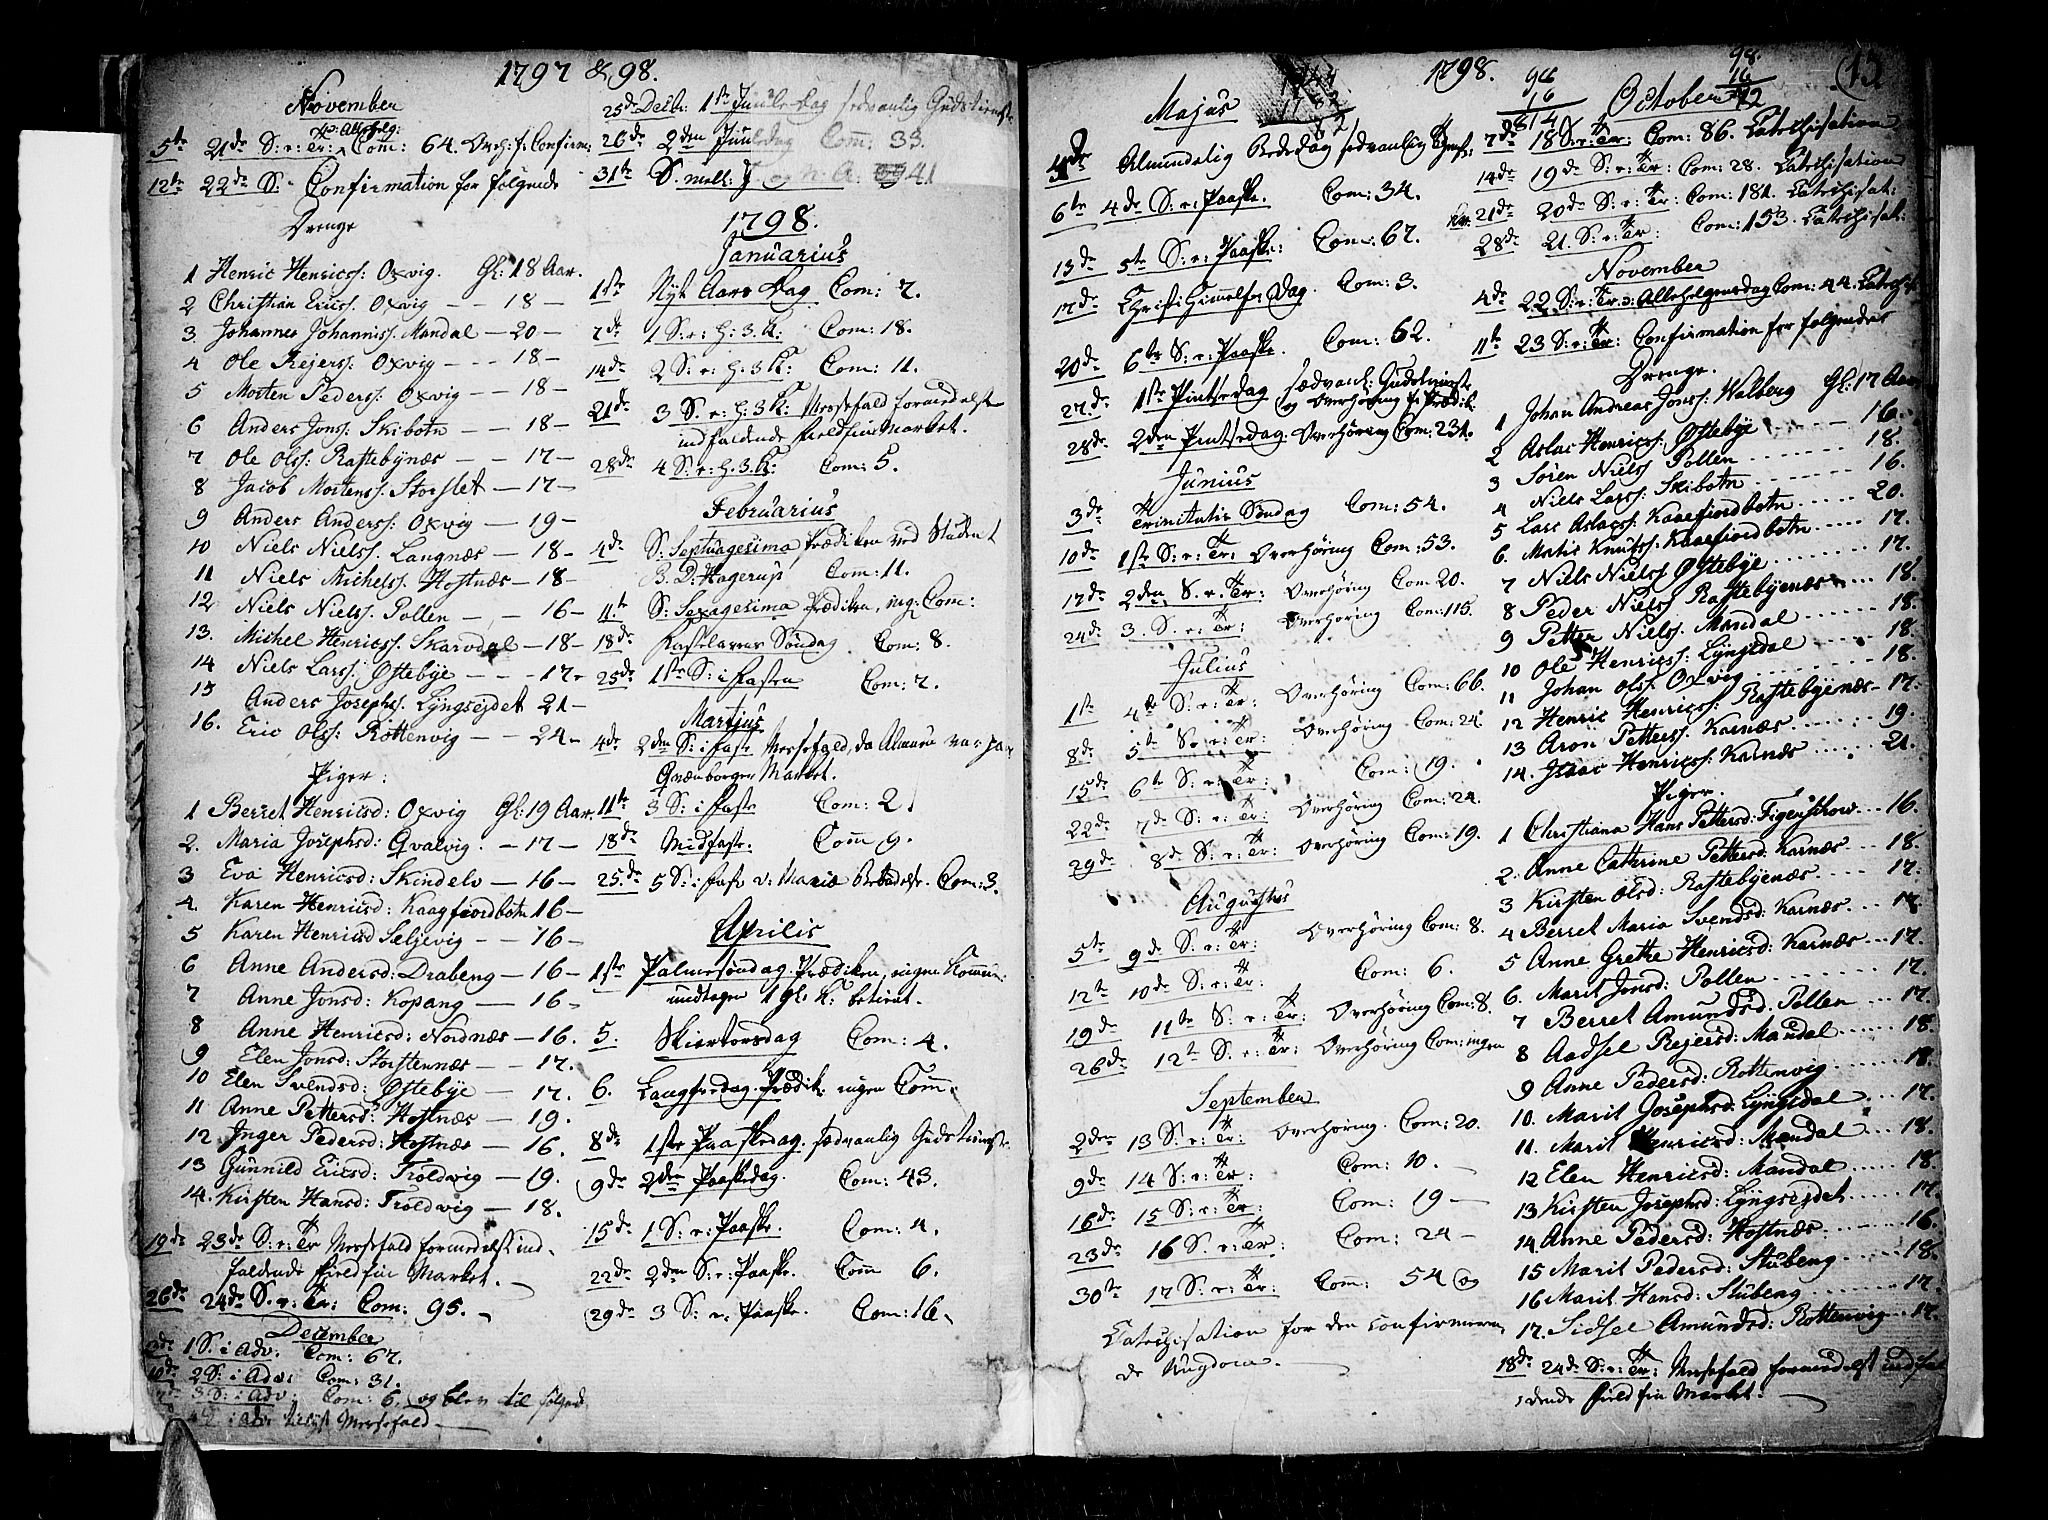 1797 & 98.
November
5te 21de S: e: Tr: Allehelg: Com: 64. Overh: f. Confirm:
12te 22de S: Confirmation for følgende
Drenge
1 Henric Henricss: Oxvig. Gl: 18 Aar.
2 Christian Ericss. Oxvig - - 18 -
3 Johannes Johanniss: Mandal - 20 -
4 Ole Rejerss: Oxvig - - 18 -
5 Morten Pederss: Oxvig - - 18 -
6 Anders Jonss: Skibotn - - 18 -
7 Ole Olss: Rastebynæs - - 17 -
8 Jacob Mortenss. Storslet - 17 -
9 Anders Anderss: Oxvig - 19 -
10 Niels Nielss. Langnæs - 18 -
11 Niels Michelss. Hostnæs - 18 -
12 Niels Nielss. Pollen - - 16 -
13. Michel Henricss. Skarvdal - 18 -
14 Niels Larss: Østebye - - - 17 -
15 Anders Josephss. Lyngsejdet 21 -
16. Eric Olss: Rottenvig - - 24 -
Piger:
1 Berret Henricsd: Oxvig Gl: 19 Aar.
2. Maria Josephsd: Qvalvig. - 17 -
3 Eva Henricsd: Skindelv - 16 -
4. Karen Henricsd: Kaagfiordbotn 16 -
5 Karen Henricsd Sæljevig - - 16 -
6 Anne Andersd: Drabeng - 16 -
7 Anne Jonsd: Kopang - 16 -
8 Anne Henricsd: Nordnæs - 16.
9 Elen Jonsd: Storstennæs - - 17.
10 Elen Svendsd: Østebye - 17.
11 Anne Pettersd: Hostnæs - 19.
12 Inger Pedersd: Hostnæs - 16.
13 Gunnild Ericsd: Troldvig - 19.
14. Kirsten Hansd: Troldvig - 18.
19de 23de S: e: Tr Messefald formedelst ind-
faldende Field fin Market. -
26de 24de S. e: Tr: Com: 95. -
December
3de 1 S: i Adv. Com: 67.
10de 2 S: i Adv: Com: 31.
3 S: i Adv: Com: 6.
4 S: i Adv: Messefald
25de Decbr: 1ste Juule Dag sædvanlig Gudstieniste
26de 2den Juuledag Com: 33.
31te S. mell: J. og N. A: 41
1798.
Januarius
1ste Nyt Aars Dag Com: 7.
7de 1 S: e: H: 3 K: Com: 18.
14de 2 S: e: H: 3 K: Com: 11.
21de 3 S: e: H: 3 K: Messefald formedelst
indfaldende Fieldfin Market.
28de 4 S: e: H: 3. K: Com: 5.
Februarius
4de S: Septuagesima Prædiken ved Student
B. D: Hagerup Com: 11.
11te S: Sexagesima Prædiken, ing: Com:
18de Fastelavens Søndag Com: 8.
25de 1ste S: i Fasten Com: 7.
Martius
4de 2den S: i Faste Messefald, da Almuen var paa
Qvænborger Market.
11te 3 S: i Faste Com: 21
18de Midfaste. Com 9.
25de 5 S: i Faste v: Mariæ Bebudelse. Com: 3.
Aprilis
1ste Palmesøndag Prædiken, ingen Kommun:
undtagen 1 gl. K: betient.
5. Skiertorsdag Com: 4.
6. Langfredag Prædik: ingen Com:
8de 1ste Paaskedag. sædvanlig Gudstieniste
9de 2den Paaskedag. Com: 43.
15de 1 S: e: Paaske. Com: 4.
22de 2den S: e: Paaske. Com 6.
29de 3 S: e: Paaske. Com: 16.
1798.
15
Majus
4de Almindelig Bededag sædvanlig
6te 4de S: e: Paaske. Com: 34.
13de 5te S: e: Paaske: Com: 67.
17de Christi Himmelf: Dag. Com: 3.
20de 6te S: e: Paaske. Com: 62.
27de 1ste Pintsedag sædvanl: Gudstieniste
og Overhøring
28de 2den Pintsedag. Overhøring Com: 231.
Junius
3de Trinitatis Søndag Com: 54.
10de 1ste S: e: Tr: Overhøring Com: 53.
17de 2den S. e: Tr: Overhøring Com 20.
24de 3. S. e: Tr: Overhøring Com: 115.
Julius
1ste 4de S: e: Tr: Overhøring Com: 66.
8de 5te S: e: Tr: Overhøring Com: 24
15de 6te S: e: Tr: Com: 19.
22de 7de S: e: Tr: Overhøring Com: 24.
29de 8de S: e: Tr: Overhøring Com: 19.
Augustus
5te 9de S: e: Tr: Overhøring Com: 8.
12te 10de S: e: Tr: Com: 6.
19de 11te S: e: Tr: Overhøring Com: 8.
26de 12te S. e: Tr: Overhøring Com: ingen
September
2den 13 S: e: Tr: Overhøring. Com: 20.
9de 14 S: e: Tr: Com: 10. -
16de 15 S: e: Tr: Com: 19 -
23de 16 S. e: Tr: Com: 24 -
30te 17 S: e: Tr: Com: 54 og
Catechisation for den confirmeren
de Ungdom. -
96
16
614
98.
16
72
October
7de 18 S: e: Tr: Com: 86. Catechisation
14de 19de S: e: Tr: Com: 28. Catechisation
21de 20de S: e: Tr: Com: 181. Catechisat:
28de 21. S: e: Tr: Com: 153. Catechisat:
November
4de 22 S: e: Tr: Allehelgensdag Com: 44. Catechis
11te 23 S: e: Tr: Confirmation for følgende
Drenge.
1 Johan Andreas Jonss: Walberg Gl: 17 Aar
2 Aslac Henricss: Østebye - 16.
3 Søren Nielss Pollen ...... 18.
4 Niels Larss: Skibotn ...... 16.
5 Lars Aslagss: Kaaefiordbotn ..... 20.
6. Matis Knutss. Kaaefiordbotn ..... 17.
7 Niels Nielss Østebye ....... 17.
8 Peder Nielss Rastebyenæs .... 18.
9 Petter Nielss. Mandal ...... 18.
10 Ole Henricss: Lyngsdal ...... 18.
11 Johan Olss. Oxvig ....... 18.
12 Henric Henricss: Rastebyenæs - 17.
13 Aron Petterss. Karnæs ...... 19.
14. Isaac Henricss: Karnæs ...... 21.
Piger.
1 Christiana Hans Pettersd: Figenschow ... 16.
2. Anne Cathrine Pettersd: Karnæs ... 18.
3 Kirsten Olsd: Rastebyenæs ..... 17.
4 Berret Maria Svendsd: Karnæs ... 17.
5 Anne Grethe Henricsd: Karnæs ... 17.
6. Marit Jonsd: Pollen ....... 17.
7 Berret Amundsd. Pollen ... 17.
8 Aadsel Rejersd: Mandal ..... 18.
9 Anne Pedersd: Rottenvig ...... 18.
10. Marit Josephsd: Lyngsdal .... 17.
11. Marit Henricsd: Mandal .... 18.
12 Elen Henricsd: Mandal ..... 18.
13 Kirsten Josephsd: Lyngsejdet ..... 17.
14 Anne Pedersd: Hostnæs ..... 16.
15 Marit Pedersd: Stubeng ...... 18.
16 Marit Hansd: Stubeng ...... 17.
17. Sidsel Amundsd: Rottenvig .... 17.
18de 24de S: e: Tr: Messefald formedelst indfal
dende Field fin Market.